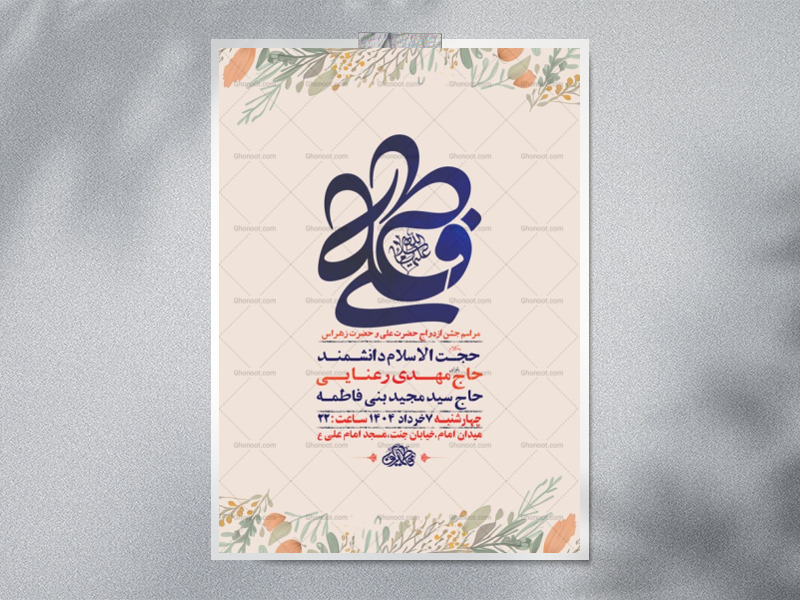 علی
فاطمه
علیهما السلام
مراسم جشن ازدواج حضرت علی و حضرت زهرا س
حجت الاسلام دانشمند
حاج مهدی رعنایی
حاج سید مجید بنی فاطمه
چهارشنبه ۷ خرداد ۱۴۰۴ ساعت: ۲۲
میدان امام، خیابان جنت، مسجد امام علی ع
Ghonoot.com